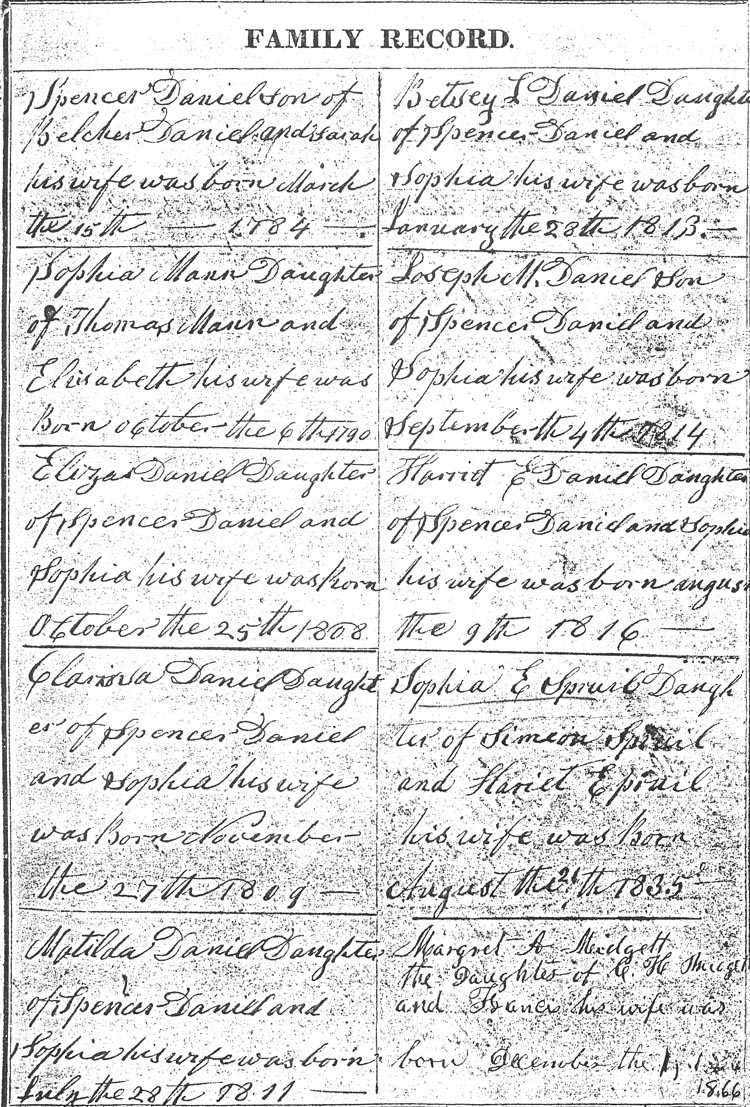 FAMILY RECORD.
Spencer Daniel son of
Belcher Daniel and Sarah
his wife was born March
the 15th — 1784 —.
Sophia Mann Daughter
of Thomas Mann and
Elisabeth his wife was
Born October the 6th 1790
Eliza Daniel Daughter
of Spencer Daniel and
Sophia his wife was Born
October the 25th 1808
Clarissa Daniel Daught
er of Spencer Daniel
and Sophia his wife
was Born November
the 27th 1809 —
Matilda Daniel Daughter
of Spencer Daniel and
Sophia his wife was born
July the 28th 1811 —
Betsey L Daniel Daughte
of Spencer Daniel and
Sophia his wife was born
January the 28th 1813. —
Joseph M. Daniel Son
of Spencer Daniel and
Sophia his wife was born
September th 4th 1814
Harriot E Daniel Daughter
of Spencer Daniel and Sophia
his wife was born augus
the 9th 1816 —
Sophia E Spruil Daugh
ter of Simeon Spruil
and Hariet E pruil
his wife was Born
August the 21th 1835 —
Margret A Midgett
the Daughter of C. H Midget
and Francis his wife was
born December the
1866